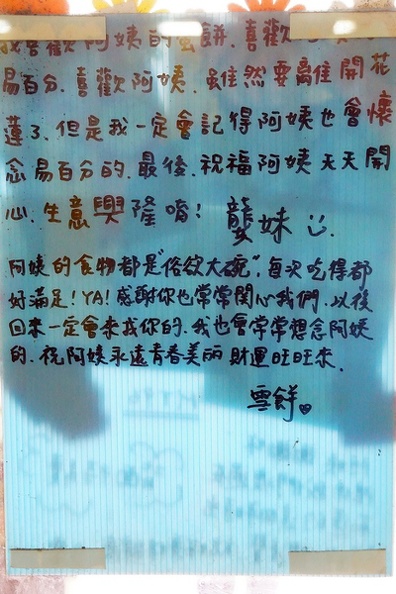 我喜歡阿姨的蛋餅.喜歡
易百分.喜歡阿姨.雖然要離開花
蓮了.但是我一定會記得阿姨也會懷
念易百分的.最後.祝福阿姨天天開
心.生意興隆唷!龔妹
阿姨的食物都是"俗欲大碗",每次吃得都
好滿足!YA!感謝你也常常関心我們.以後
回來一定會來找你的.我也會常常想念阿姨
的.祝阿姨永遠青春美丽財運旺旺來.
雪餅